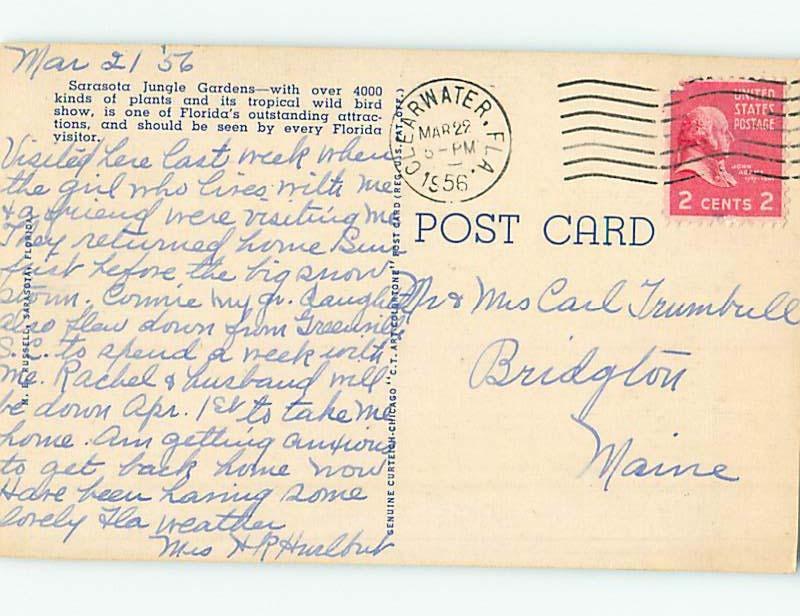 Mar 21 '56
Sarasota Jungle Gardens—with over 4000
kinds of plants and its tropical wild bird
show, is one of Florida's outstanding attrac-
tions, and should be seen by every Florida
visitor.
Visited here last week when
the girl who lives with me
& a friend were visiting me
They returned home Sun
just before the big snow
storm. Connie my gr. daughter
also flew down from Greenville
S.C. to spend a week with
me. Rachel & husband will
be down Apr. 1st to take me
home. Am getting anxious
to get back home now
Have been having some
lovely Fla weather
Mrs H R Hurlbut
M. E. RUSSELL, SARASOTA, FLORIDA
GENUINE CURTEICH-CHICAGO "C.T. ART-COLORTONE" POST CARD (REG. U.S. PAT. OFF.)
CLEARWATER, FLA.
MAR 22
6-PM
1956
UNITED
STATES
POSTAGE
JOHN
ADAMS
2 CENTS 2
POST CARD
Mr & Mrs Carl Trumbull
Bridgton
Maine